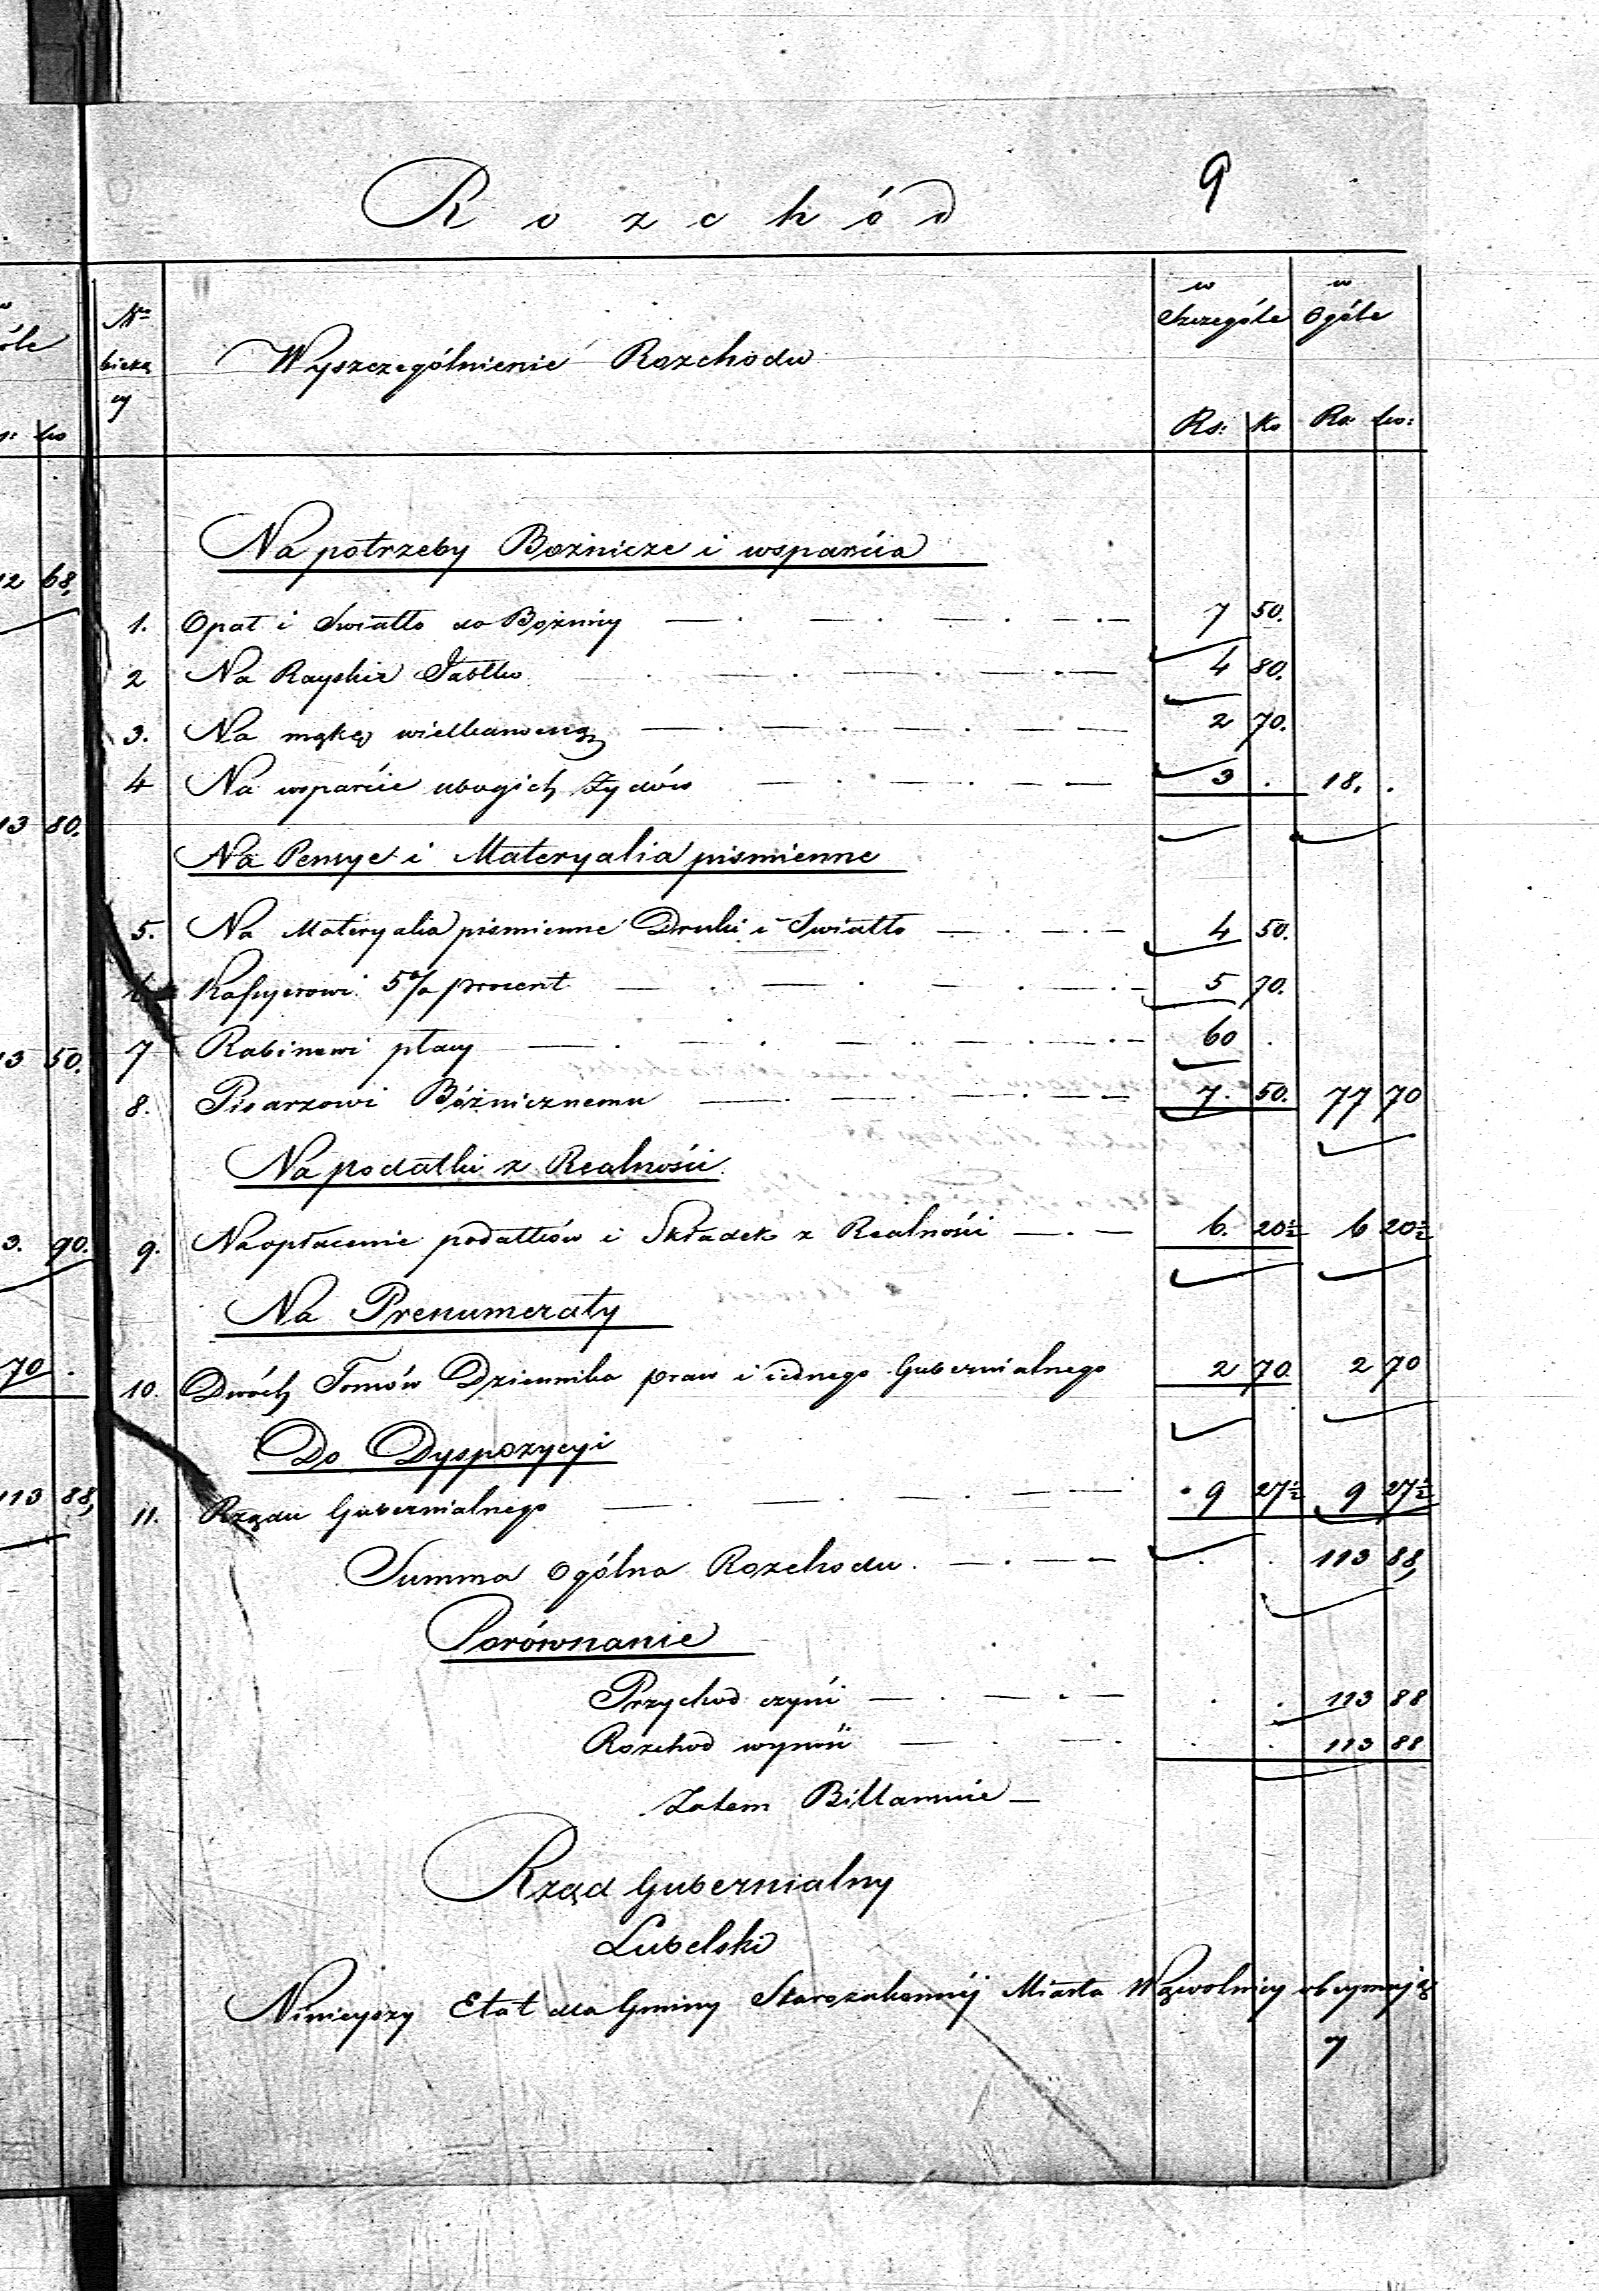 9
Rozchód
No bieżący
Wyszczególnienie Rozchodu
w Szczególe
w Ogóle
Rs: Ko Rs: ko:
Na potrzeby Bożnicze i wsparcia
1. Opał i Swiatło do Bożnicy 7 50.
2 Na Rayskie Jabłko 4 80.
3. Na mąkę wielkanocną 2 70.
4 Na wsparcie ubogich Żydów 3 . 18. .
Na Pensye i Materyalia pismienne
5. Na Materyalia pismienne Druki i Swiatło 4 50.
6 Kassyerowi 5% procent 5 70.
7 Rabinowi płacy 60 .
8. Pisarzowi Bóżnicznemu 7. 50. 77 70
Na podatki z Realności
9. Na opłacenie podatków i Składek z Realności 6. 20½ 6 20½
Na Prenumeraty
10. Dwóch Tomów Dziennika praw i iednego Gubernialnego 2 70. 2 70
Do Dyspozycyi
11. Rządu Gubernialnego 9 27½ 9 27½
Summa Ogólna Rozchodu . . 113 88,
Porównanie
Przychod czyni . . 113 88
Rozchod wynosi . . 113 88
Zatem Billansuie
Rząd Gubernialny
Lubelski
Ninieyszy Etat dla Gminy Starozakonnéj Miasta Wąwolnicy obeymują
cy
óle
ko
12 68,
13 80.
13 50.
3. 90.
70 .
113 88,